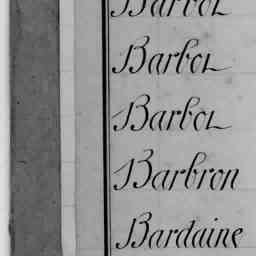 Barbot
Barbot
Barbot
Barbron
Bardaine